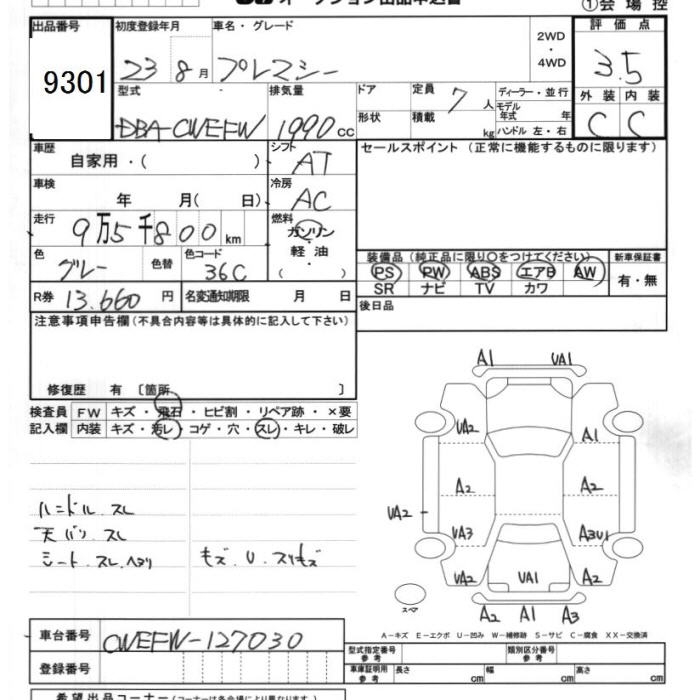 オークション出品申込書
①会場控
出品番号
9301
初度登録年月
23 8月
車名・グレード
プレマシー
2WD
・
4WD
評価点
3.5
外装 内装
C C
型式
DBA-CWEFW
排気量
1990 cc
ドア
形状
定員 7人
積載 kg
ディーラー・並行
モデル年式 年
ハンドル 左・右
車歴
自家用・( )
シフト
AT
セールスポイント (正常に機能するものに限ります)
車検
年 月( 日)
冷房
AC
走行
9万5千800km
燃料
ガソリン
・
軽油
( ・ )
色
グレー
色替
色コード
36C
装備品 (純正品に限り〇をつけてください)
PS PW ABS エアB AW
SR ナビ TV カワ
新車保証書
有・無
R券 13.660 円
名変通知期限 月 日
後日品
注意事項申告欄 (不具合内容等は具体的に記入して下さい)
修復歴 有 〔箇所 〕
検査員記入欄
FW キズ・飛石・ヒビ割・リペア跡・×要
内装 キズ・汚レ・コゲ・穴・スレ・キレ・破レ
ハンドル.スレ
天バリ.スレ
シート.スレ.ヘタリ
キズ.U.スリキズ
A1 UA1
UA2 A1
A2 A2
UA2
UA3 A3U1
UA2 UA1 A2
スペア
A2 A1 A3
A-キズ E-エクボ U-凹み W-補修跡 S-サビ C-腐食 XX-交換済
車台番号
CWEFW-127030
登録番号
型式指定番号 参考
類別区分番号 参考
車庫証明用 参考
長さ cm 幅 cm 高さ cm
希望出品コーナー